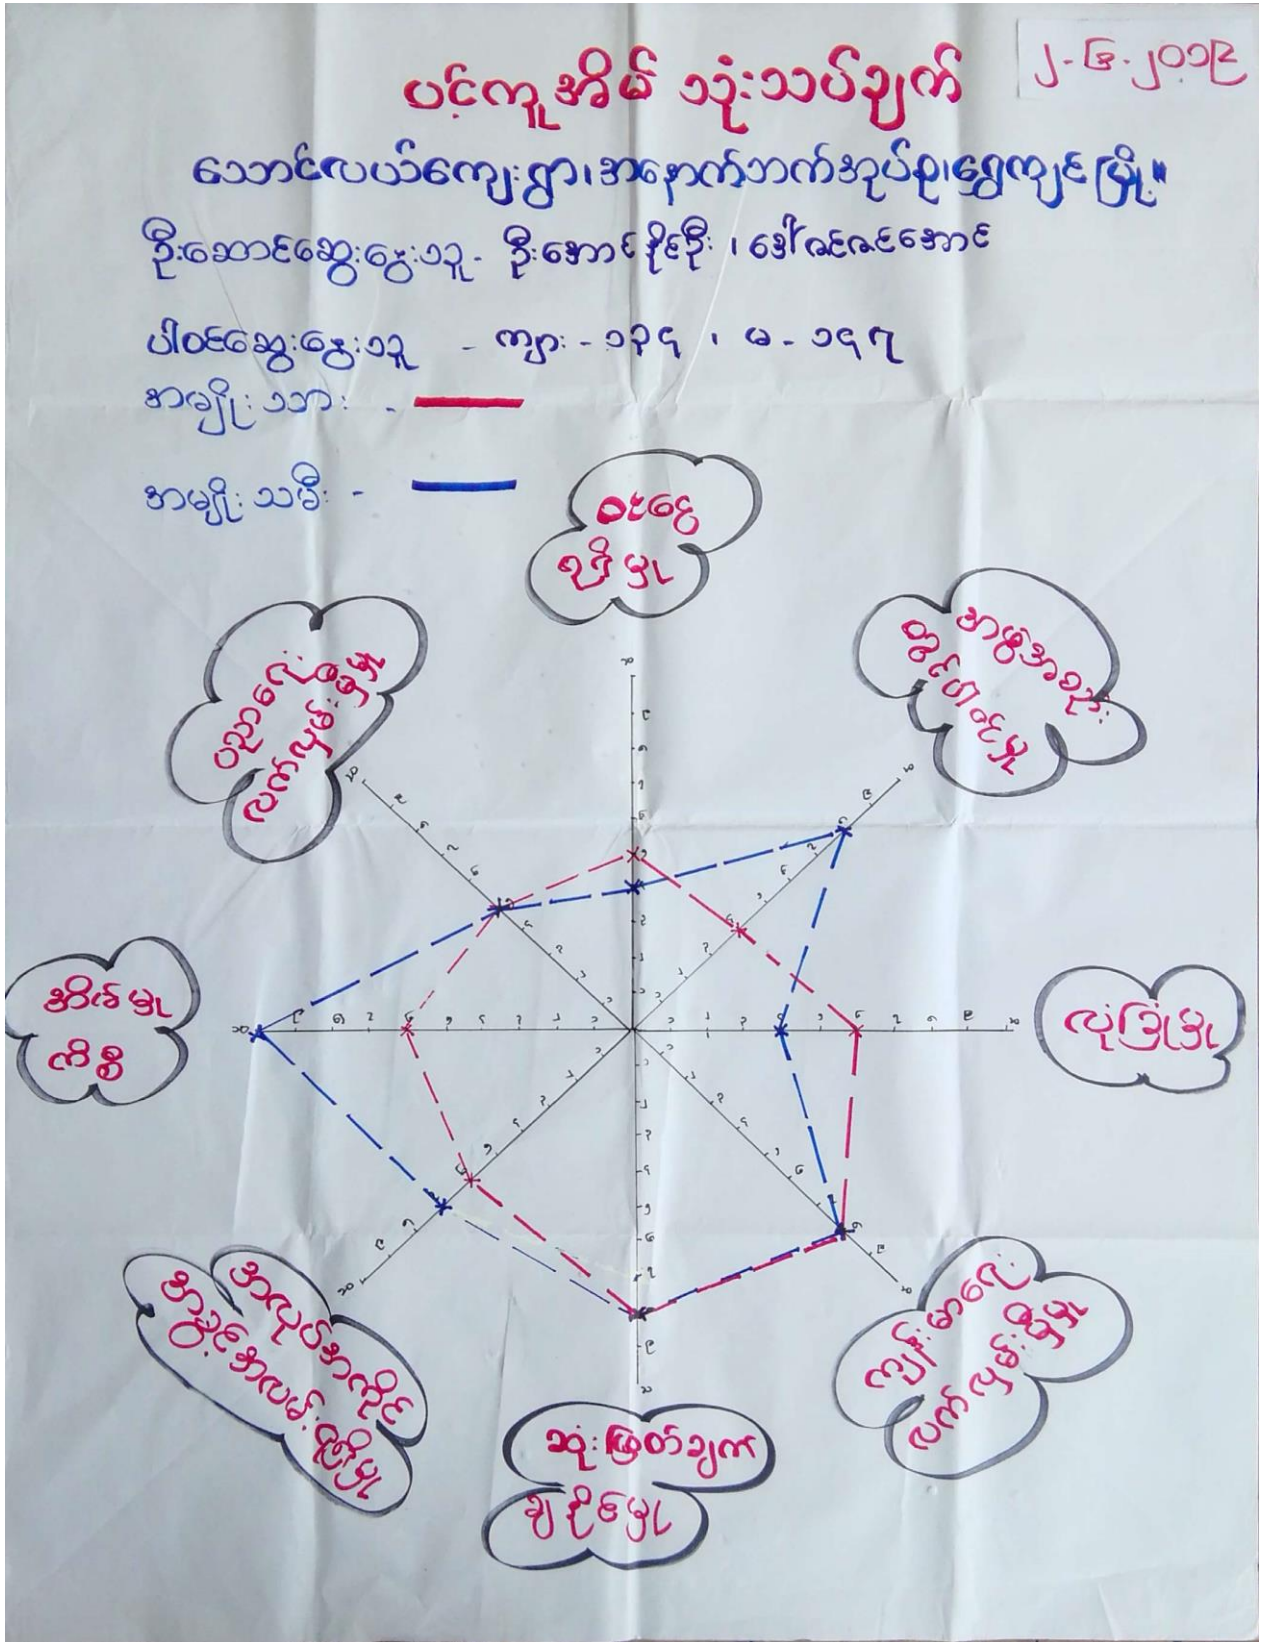 ၂-၆-၂၀၁၉
ပင့်ကူအိမ် သုံးသပ်ချက်
သောင်လယ်ကျေးရွာ၊အနောက်ဘက်အုပ်စု၊ရွှေကျင်မြို့။
ဦးဆောင်ဆွေးနွေးသူ- ဦးအောင်နိုင်ဦး ၊ ဒေါ်ဇင်ဇင်အောင်
ပါဝင်ဆွေးနွေးသူ - ကျား - ၁၃၄ ၊ မ - ၁၄၇
အမျိုးသား -
အမျိုးသမီး -
ဝင်ငွေ
ရရှိမှု
အဖွဲ့အစည်း
တွင်ပါဝင်မှု
လုံခြုံမှု
ကျန်းမာရေး
လက်လှမ်းမှီမှု
ဆုံးဖြတ်ချက်
ချနိုင်မှု
အလုပ်အကိုင်
အခွင့်အလမ်းရရှိမှု
အိမ်မှု
ကိစ္စ
ပညာရေး
လက်လှမ်းမှီမှု